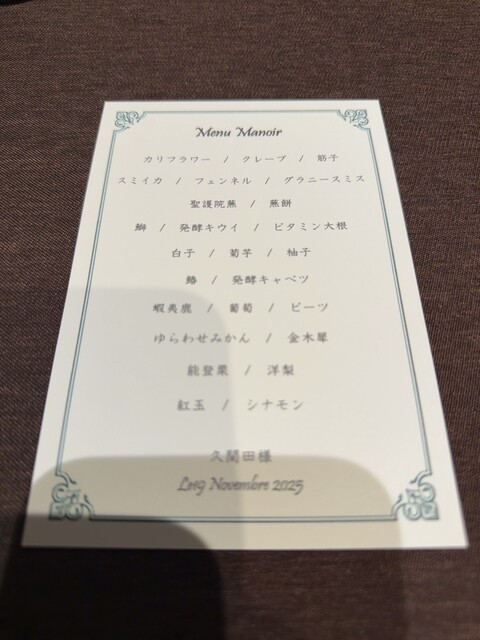 Menu Manoir
カリフラワー / クレープ / 筋子
スミイカ / フェンネル / グラニースミス
聖護院蕪 / 蕪餅
鰤 / 発酵キウイ / ビタミン大根
白子 / 菊芋 / 柚子
鰆 / 発酵キャベツ
蝦夷鹿 / 葡萄 / ビーツ
ゆらわせみかん / 金木犀
能登栗 / 洋梨
紅玉 / シナモン
久間田様
Le19 Novembre 2025